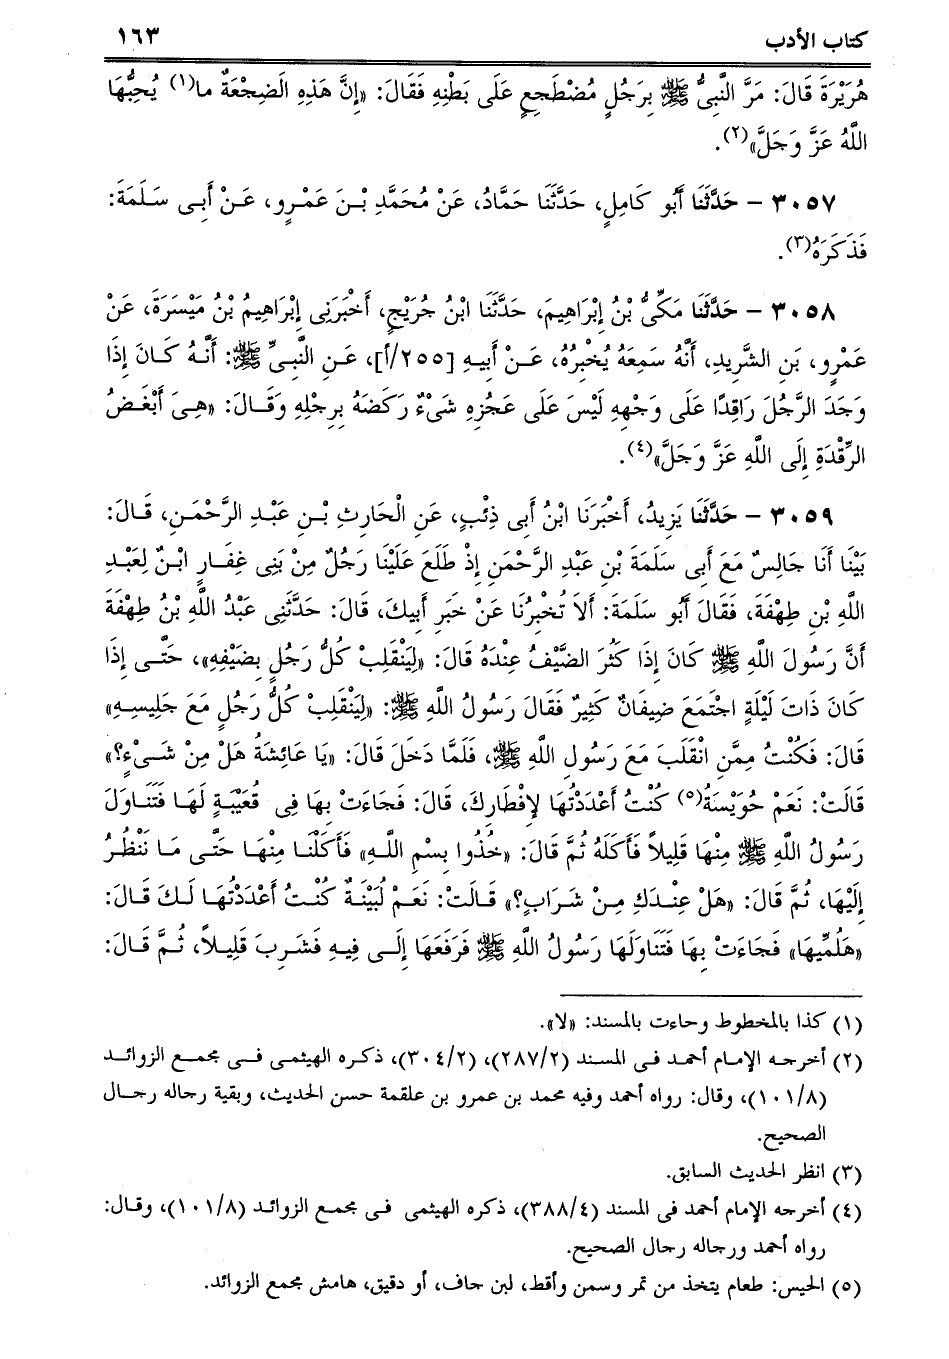 كتاب الأدب ١٦٣
هُرَيْرَةَ قَالَ: مَرَّ النَّبِىُّ ﷺ بِرَجُلٍ مُضْطَجِعٍ عَلَى بَطْنِهِ فَقَالَ: «إِنَّ هَذِهِ الَضِجْعَةٌ ما(١) يُحِبُّهَا
اللَّهُ عَزَّ وَجَلَّ»(٢).
٣٠٥٧ – حَدَّثَنَا أَبُو كَامِلٍ، حَدَّثَنَا حَمَّادُ، عَنْ مُحَمَّدِ بْنَ عَمْرٍو، عَنْ أَبِى سَلَمَةَ:
فَذَكَرَهُ(٣).
٣٠٥٨ – حَدَّثَنَا مَكِّىُّ بْنُ إِبْرَاهِيمَ، حَدَّثَنَا ابْنُ جُرَيْجٍ، أَخْبَرَنِى إِبْرَاهِيمُ بْنُ مَيْسَرَةَ، عَنْ
عَمْرٍو، بَنِ الشَّرِيدِ، أَنَّهُ سَمِعَهُ يُخْبِرُهُ، عَنْ أَبِيهِ [٢٥٥/أ]، عَنِ النَّبِىِّ ﷺ: أَنَّهُ كَانَ إِذَا
وَجَدَ الرَّجُلَ رَاقِدًا عَلَى وَجْهِهِ لَيْسَ عَلَى عَجُزِهِ شَىْءٌ رَكَضَهُ بِرِجْلِهِ وَقَالَ: «هِىَ أَبْغَضُ
الرِّقْدَةِ إِلَى اللَّهِ عَزَّ وَجَلَّ»(٤).
٣٠٥٩ – حَدَّثَنَا يَزِيدُ، أَخْبَرَنَا ابْنُ أَبِى ذِئْبٍ، عَنِ الْحَارِثِ بْنِ عَبْدِ الرَّحْمَنِ، قَالَ:
بَيْنَا أَنَا جَالِسٌ مَعَ أَبِى سَلَمَةَ بْنِ عَبْدِ الرَّحْمَنِ إِذْ طَلَعَ عَلَيْنَا رَجُلٌ مِنْ بَنِى غِفَارٍ ابْنٌ لِعَبْدِ
اللَّهِ بْنِ طِهْفَةَ، فَقَالَ أَبُو سَلَمَةَ: أَلاَ تُخْبِرُنَا عَنْ خَبَرِ أَبِيكَ، قَالَ: حَدَّثَنِى عَبْدُ اللَّهِ بْنُ طِهْفَةَ
أَنَّ رَسُولَ اللَّهِ ﷺ كَانَ إِذَا كَثُرَ الضَّيْفُ عِنْدَهُ قَالَ: «لِيَنْقَلِبْ كُلُّ رَجُلٍ بِضَيْفِهِ»، حَتَّى إِذَا
كَانَ ذَاتَ لَيْلَةٍ اجْتَمَعَ ضِيفَانٌ كَثِيرٌ فَقَالَ رَسُولُ اللَّهِ ﷺ: «لِيَنْقَلِبْ كُلُّ رَجُلٍ مَعَ جَلِيسِهِ»
قَالَ: فَكُنْتُ مِمَّنِ انْقَلَبَ مَعَ رَسُولِ اللَّهِ ﷺ، فَلَمَّا دَخَلَ قَالَ: «يَا عَائِشَةُ هَلْ مِنْ شَىْءٍ؟»
قَالَتْ: نَعَمْ حُوَيْسَةُ(٥) كُنْتُ أَعْدَدْتُهَا لإِفْطَارِكَ، قَالَ: فَجَاءَتْ بِهَا فِى قُعَيْبَةٍ لَهَا فَتَنَاوَلَ
رَسُولُ اللَّهِ ﷺ مِنْهَا قَلِيلاً فَأَكَلَهُ ثُمَّ قَالَ: «خُذُوا بِسْمِ اللَّهِ» فَأَكَلْنَا مِنْهَا حَتَّى مَا نَنْظُرُ
إِلَيْهَا، ثُمَّ قَالَ: «هَلْ عِنْدَكِ مِنْ شَرَابٍ؟» قَالَتْ: نَعَمْ لُبَيْنَةٌ كُنْتُ أَعْدَدْتُهَا لَكَ قَالَ:
«هَلُمِّيهَا» فَجَاءَتْ بِهَا فَتَنَاوَلَهَا رَسُولُ اللَّهِ ﷺ فَرَفَعَهَا إِلَى فِيهِ فَشَرِبَ قَلِيلاً، ثُمَّ قَالَ:
(١) كذا بالمخطوط وجاءت بالمسند: «لا».
(٢) أخرجه الإمام أحمد فى المسند (٢٨٧/٢)، (٣٠٤/٢)، ذكره الهيثمى فى مجمع الزوائد
(١٠١/٨)، وقال: رواه أحمد وفيه محمد بن عمرو بن علقمة حسن الحديث، وبقية رجاله رجال
الصحيح.
(٣) انظر الحديث السابق.
(٤) أخرجه الإمام أحمد فى المسند (٣٨٨/٤)، ذكره الهيثمى فى مجمع الزوائد (١٠١/٨)، وقال:
رواه أحمد ورجاله رجال الصحيح.
(٥) الحيس: طعام يتخذ من تمر وسمن وأقط، لبن جاف، أو دقيق، هامش مجمع الزوائد.